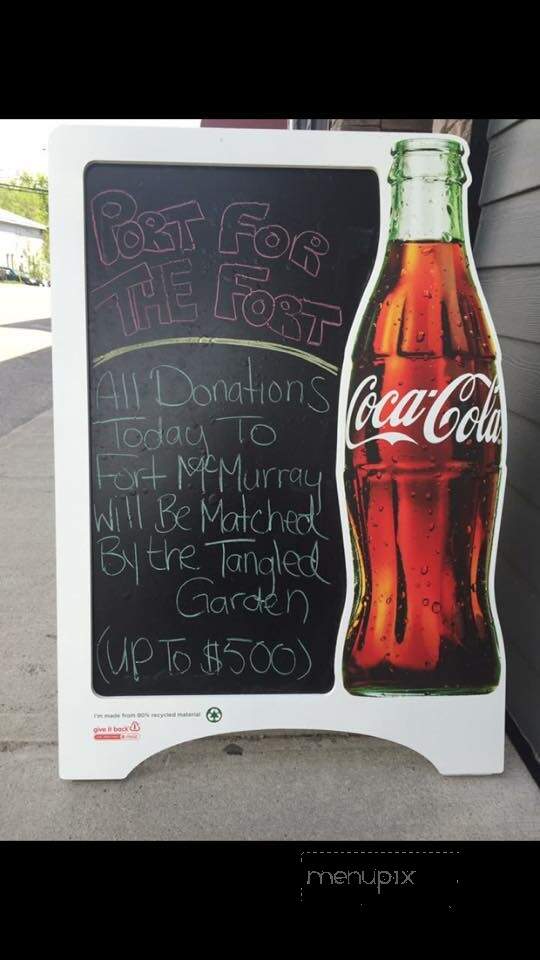 PORT FOR
THE FORT
All Donations
Today To
Fort McMurray
Will Be Matched
By the Tangled
Garden
(UP To $500)
Coca-Cola
I'm made from 80% recycled material
give it back
menupix